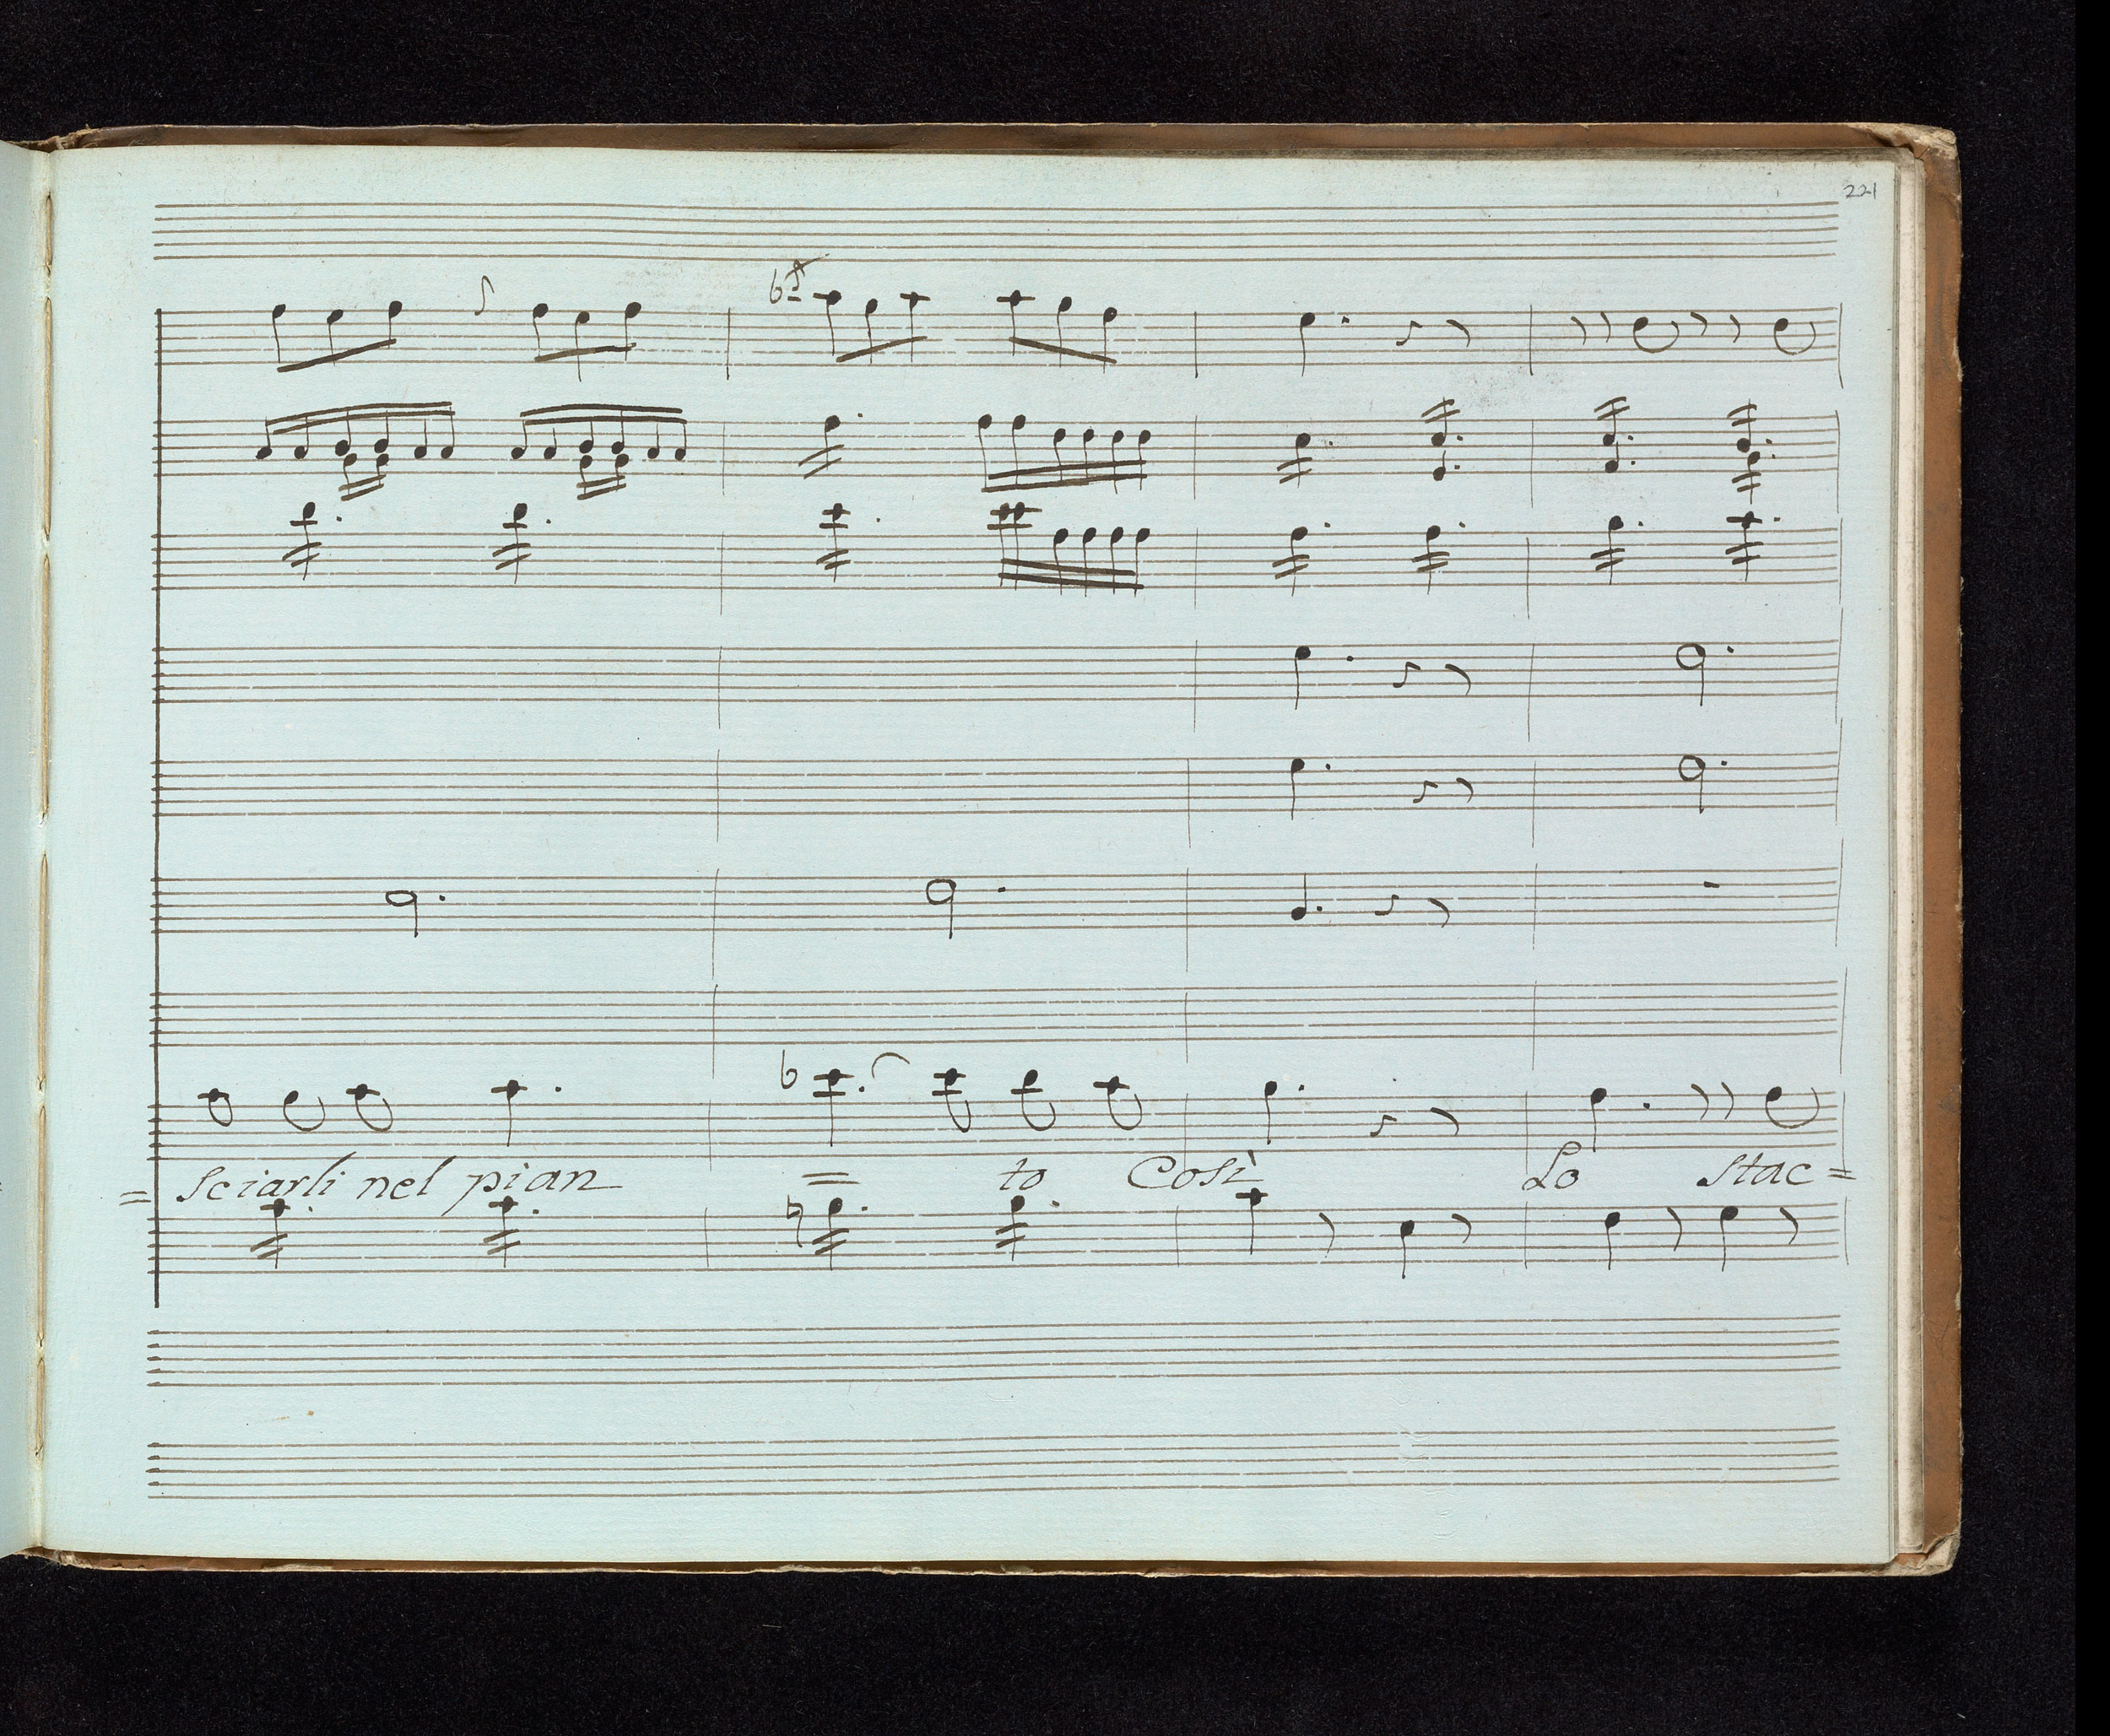 221
= sciarli nel pian = to Così Lo stac =